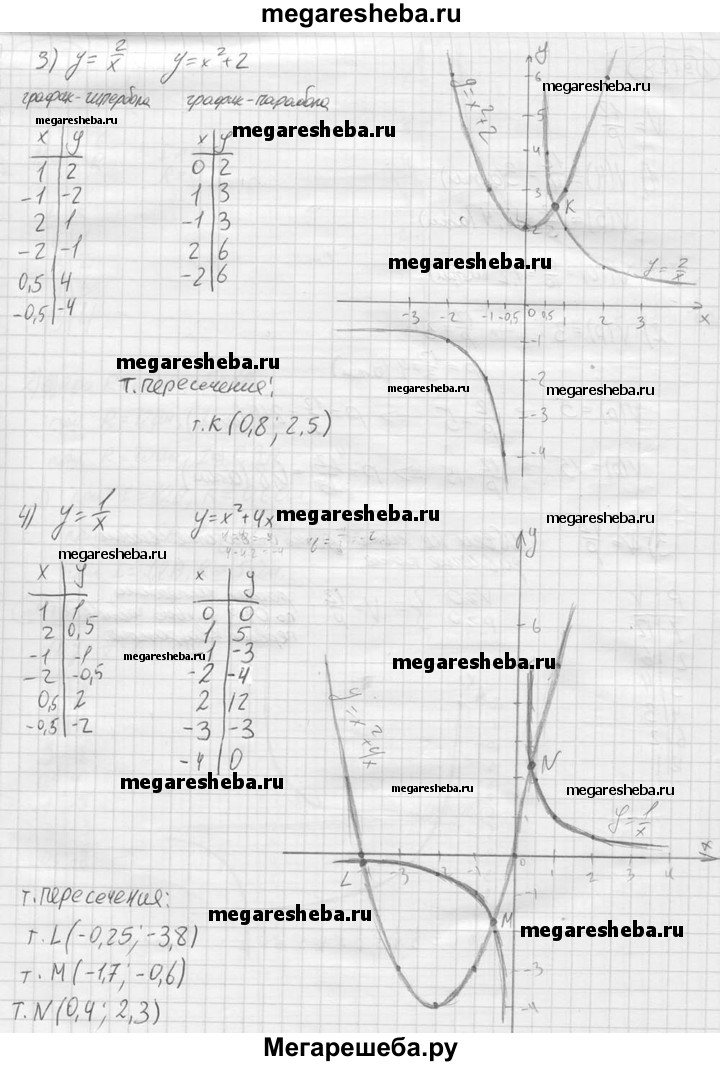 megaresheba.ru
3) y = 2/x y = x² + 2
график - гипербола график - парабола
x | y x | y
1 | 2 0 | 2
-1 | -2 1 | 3
2 | 1 -1 | 3
-2 | -1 2 | 6
0,5 | 4 -2 | 6
-0,5 | -4
т. пересечения:
т. K (0,8 ; 2,5)
y
y = x² + 2
6
4
3
2
K
y = 2/x
-3 -2 -1 -0,5 0 0,5 1 2 3 x
-1
-2
-3
-4
megaresheba.ru
megaresheba.ru
megaresheba.ru
megaresheba.ru
megaresheba.ru
megaresheba.ru
megaresheba.ru
4) y = 1/x y = x² + 4x
x | y x | y
1 | 1 0 | 0
2 | 0,5 1 | 5
-1 | -1 -1 | -3
-2 | -0,5 -2 | -4
0,5 | 2 2 | 12
-0,5 | -2 -3 | -3
-4 | 0
y
6
y = x² + 4x
N
y = 1/x
L -3 -2 -1 0 1 2 3 4 x
-1
M
-3
-4
т. пересечения:
т. L (-0,25 ; -3,8)
т. M (-1,7 ; -0,6)
т. N (0,4 ; 2,3)
megaresheba.ru
megaresheba.ru
megaresheba.ru
megaresheba.ru
megaresheba.ru
megaresheba.ru
megaresheba.ru
megaresheba.ru
megaresheba.ru
megaresheba.ru
megaresheba.ru
Мегарешеба.ру